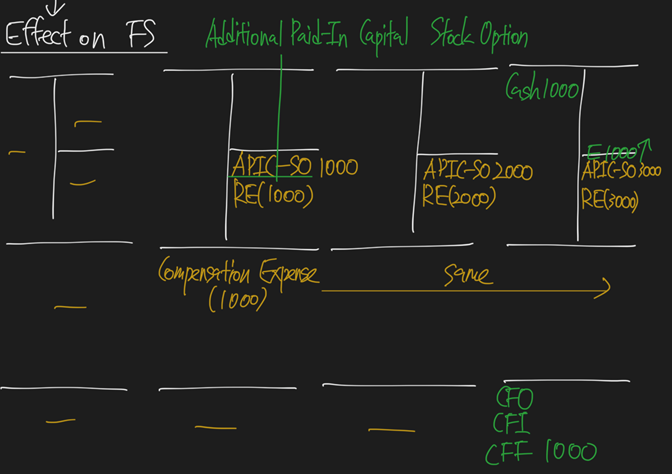 Effect on FS
Additional Paid-In Capital Stock Option
Cash 1000
E 1000↑
APIC-SO 1000
RE(1000)
APIC-SO 2000
RE(2000)
APIC-SO 3000
RE(3000)
Compensation Expense
(1000)
same
CFO
CFI
CFF 1000